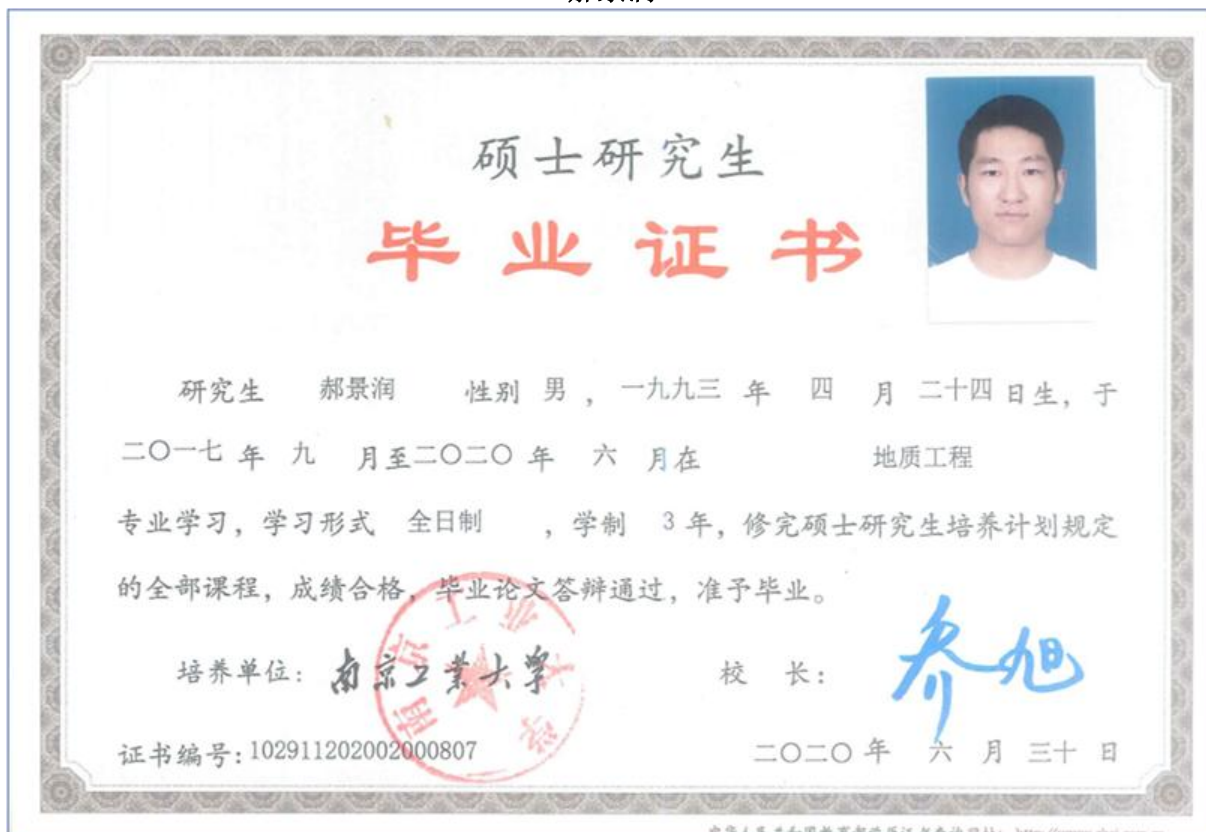 硕士研究生
毕业证书
研究生 郝景润 性别 男 ，一九九三 年 四 月 二十四 日生，于
二〇一七 年 九 月至二〇二〇 年 六 月在 地质工程
专业学习，学习形式 全日制 ，学制 3 年，修完硕士研究生培养计划规定
的全部课程，成绩合格，毕业论文答辩通过，准予毕业。
培养单位：南京工业大学 校 长：
南京工业大学
证书编号：102911202002000807 二〇二〇 年 六 月 三十 日